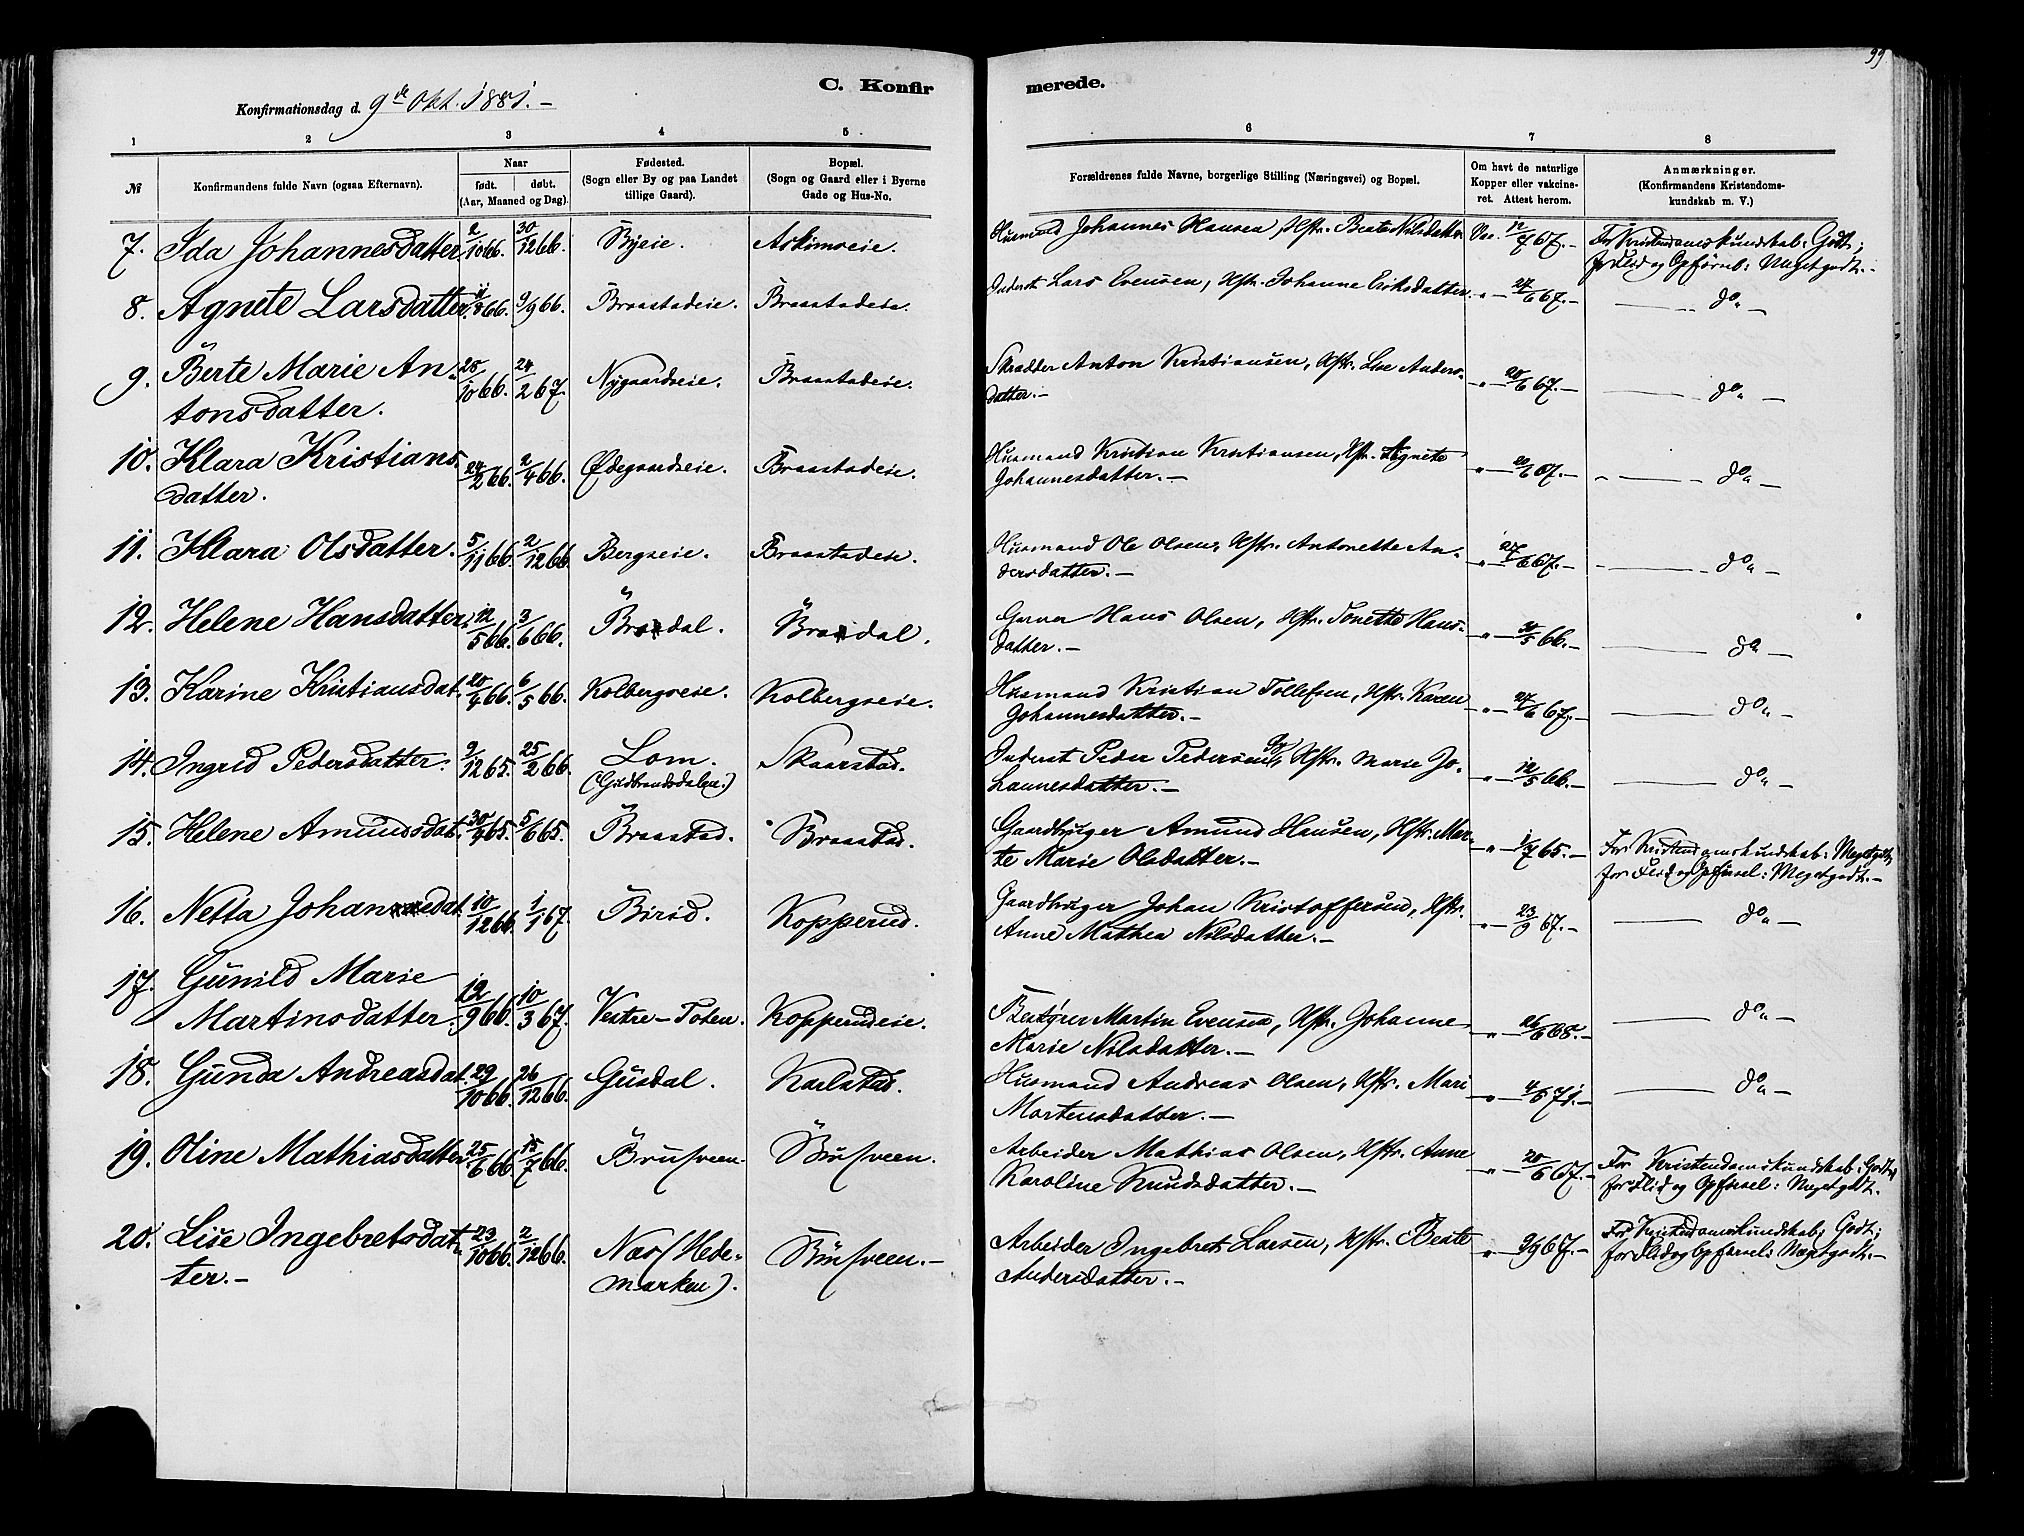 99
C. Konfirmerede.
Konfirmationsdag d. 9de Okt. 1881.-
1 2 3 4 5 6 7 8
№ Konfirmandens fulde Navn (ogsaa Efternavn). Naar født. døbt. (Aar, Maaned og Dag). Fødested. (Sogn eller By og paa Landet tillige Gaard). Bopæl. (Sogn og Gaard eller i Byerne Gade og Hus-No. Forældrenes fulde Navne, borgerlige Stilling (Næringsvei) og Bopæl. Om havt de naturlige Kopper eller vakcineret. Attest herom. Anmærkninger. (Konfirmandens Kristendomskundskab m. V.)
7. Ida Johannesdatter 2/10 66. 30/12 66. Byeie. Askimseie. Husmand Johannes Hansen, Hstr. Beate Nilsdatter Vac. 12/7 67.- For Kristendomskundskab: Godt;
for Flid og Opførsel: Meget godt.-
8. Agnete Larsdatter. 11/8 66. 9/9 66. Braastadeie. Braastadeie. Inderst Lars Evensen, Hstr. Johanne Eriksdatter. -"- 27/6 67.- do -
9. Berte Marie An- 28/10 66. 24/2 67. Nygaardseie. Braastadeie. Skrædder Anton Kristiansen, Hstr. Lise Anders- -"- 20/6 67.- do -
tonsdatter. datter.-
10. Klara Kristians- 24/2 66. 2/4 66. Ødegaardseie. Braastadeie. Husmand Kristian Kristiansen, Hstr. Agnete -"- 20/6 67.- do -
datter. Johannesdatter.-
11. Klara Olsdatter. 5/11 66. 2/12 66. Bergseie. Braastadeie. Husmand Ole Olsen, Hstr. Antonette An- -"- 27/6 67.- do -
dersdatter.-
12. Helene Hansdatter. 12/5 66. 3/6 66. Bradal. Bradal. Garver Hans Olsen, Hstr. Tonette Hans- -"- 66.- do -
datter.-
13. Karine Kristiansdat. 20/4 66. 6/5 66. Kolbergseie. Kolbergseie. Husmand Kristian Tollefsen, Hstr. Karen -"- 27/6 67.- do -
Johannesdatter.-
14. Ingrid Pedersdatter. 9/12 65. 25/2 66. Lom. Skaarstad. Inderst Peder Pedersen, Hstr. Marie Jo- -"- 12/5 66.- do -
(Gudbrandsdalen.) hannesdatter.-
15. Helene Amundsdat. 30/4 65. 5/6 65. Braastad. Braastad. Gaardbruger Amund Hansen, Hstr. Mar- -"- 1/7 65.- For Kristendomskundskab: Megetgodt,
te Marie Olsdatter.- for Flid og Opførsel: Megetgodt.-
16. Netta Johansdat. 10/12 66. 1/1 67. Birid. Kopperud. Gaardbruger Johan Kristoffersen, Hstr. -"- 23/9 67.- do -
Anne Mathea Nilsdatter.-
17. Gunild Marie
Martinsdatter. 12/9 66. 10/3 67. Vestre-Toten. Kopperudeie. Martin Evensen, Hstr. Johanne -"- 26/6 68.- do -
Marie Nilsdatter.-
18. Gunda Andreasdat. 29/10 66. 26/12 66. Gusdal. Karlstad. Husmand Andreas Olsen, Hstr. Mari -"- 4/6 71.- do -
Mortensdatter.-
19. Oline Mathiasdatter. 25/6 66 15/7 66. Brusveen. Brusveen. Arbeider Mathias Olsen, Hstr. Anne -"- 20/6 67.- For Kristendomskundskab: Godt,
Karoline Knudsdatter.- for Flid og Opførsel: Megetgodt.
20. Lise Ingebretsdat- 23/10 66. 2/12 66. Næs (Hede- Brusveen.- Arbeider Ingebret Larsen, Hstr. Beate " - 9/9 67.- For Kristendomskundskab: Godt;
ter.- marken). Andersdatter.- for Flid og Opførsel: Megetgodt.-